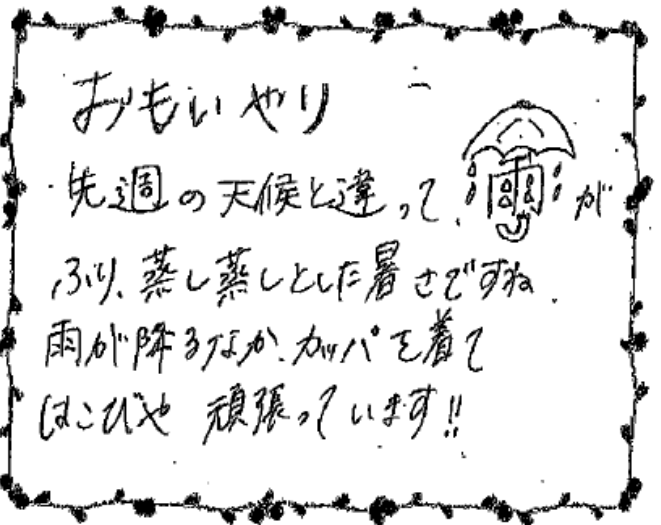 おもいやり
先週の天候と違って、雨が
ふり、蒸し蒸しとした暑さですね.
雨が降るなか、カッパを着て
はこびや 頑張っています!!